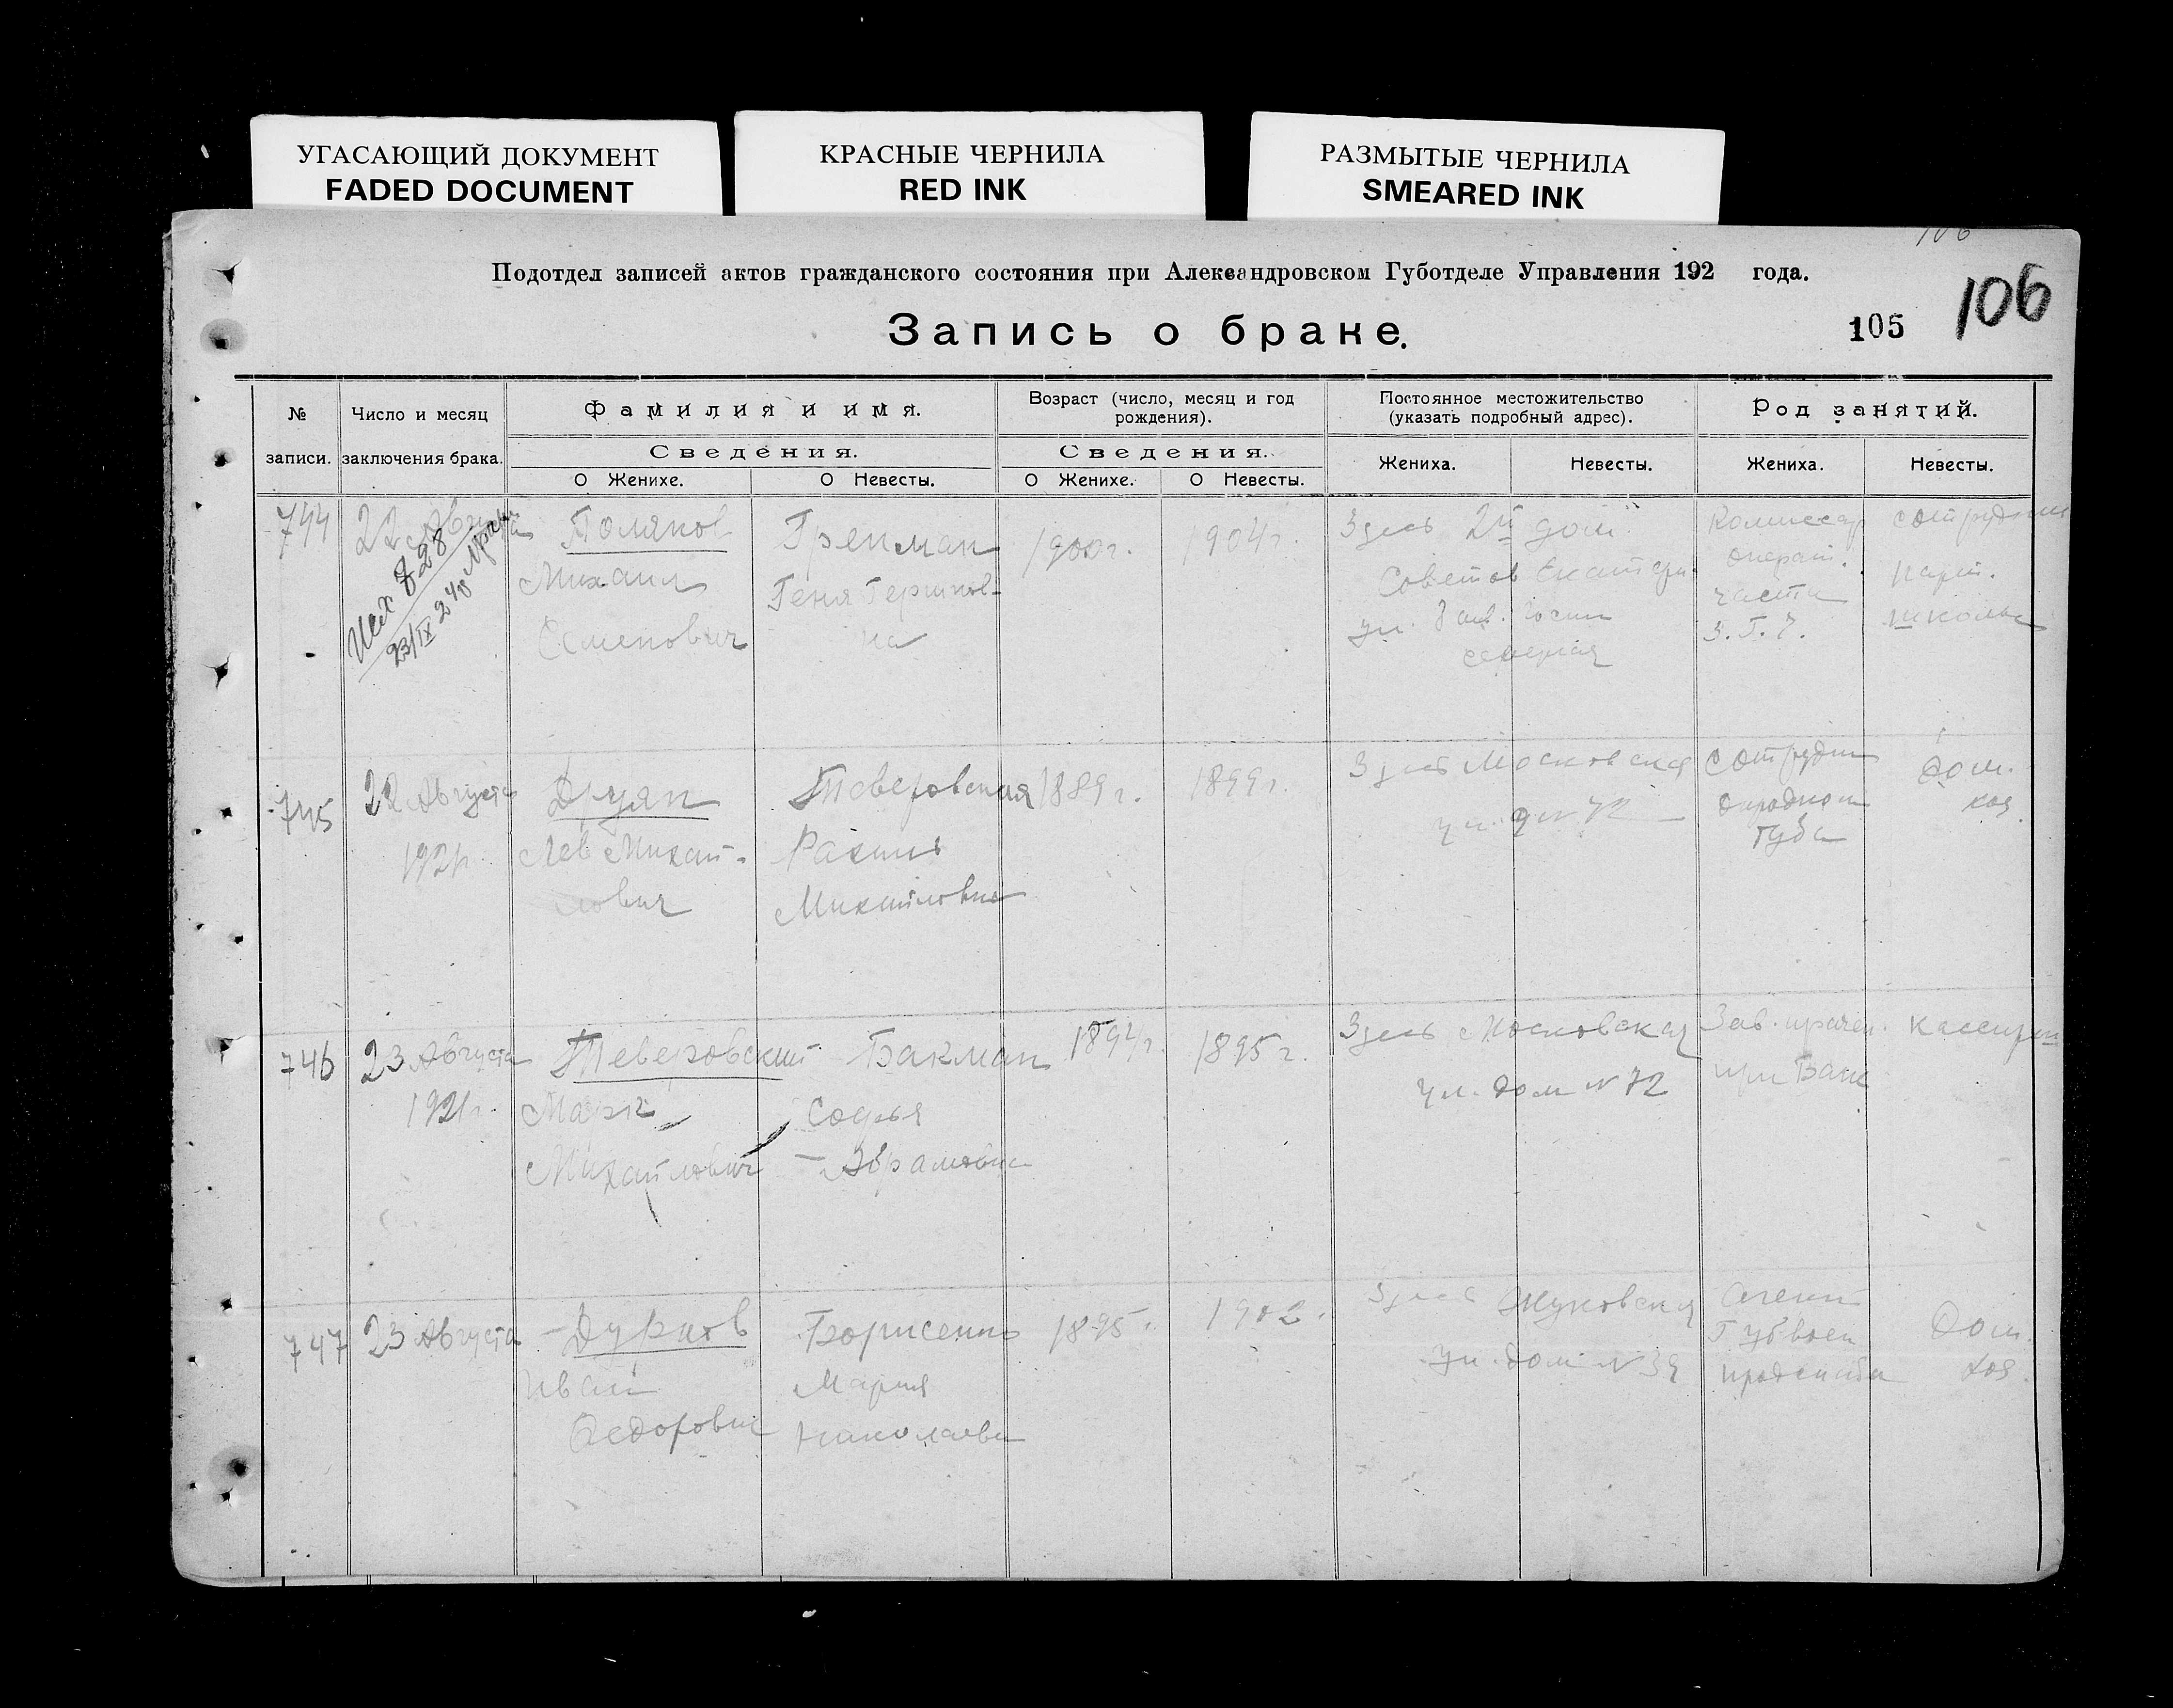 УГАСАЮЩИЙ ДОКУМЕНТ
FADED DOCUMENT
КРАСНЫЕ ЧЕРНИЛА
RED INK
РАЗМЫТЫЕ ЧЕРНИЛА
SMEARED INK
106
Подотдел записей актов гражданского состояния при Александровском Губотделе Управления 192 года.
106
Запись о браке.
105
№ записи.
Число и месяц заключения брака.
Фамилия и имя.
Возраст (число, месяц и год рождения).
Постоянное местожительство (указать подробный адрес).
Род занятий.
Сведения.
Сведения.
О Женихе.
О Невесты.
О Женихе.
О Невесты.
Жениха.
Невесты.
Жениха.
Невесты.
744
22 Августа
Исх 828
23/IX
Поляков
Михаил
Семенович
Грепман
Геня Гершков-
на
1900г.
1904г.
Здесь 2й дом
Советов Екатерин.
ул.
северная
Комиссар
операт.
части
З.Г.Ч.
сотрудни
парт.
школы
745
22 Августа
1921г.
Друян
Лев Михай-
лович
Теверовская
Рахиль
Михайловна
1889г.
1899г.
Здесь Московская
ул. д N 72
Сотрудник
Губ
дом.
хоз.
746
23 Августа
1921г.
Теверовский
Марк
Михайлович
Бакман
Софья
Абрамовна
1894г.
1895г.
Здесь Московская
ул. дом N 72
Зав. прачеч.
при Бане
кассирш
747
23 Августа
Дурнов
Иван
Федорович
Борисенко
Мария
Николаевн
1895г.
1902.
Здесь Жуковская
ул. дом N 34
Агент
Губвоен
продснаба
Дом.
хоз.